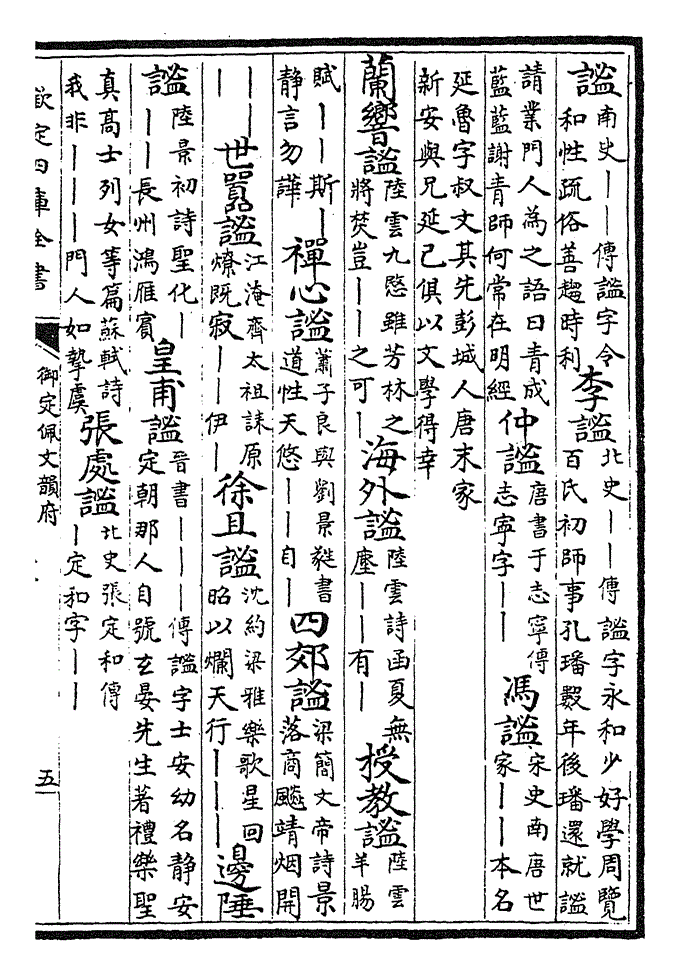 謐南史——傳謐字令
和性疏俗善趨時利
李謐北史——傳謐字永和少好學周覽
百氏初師事孔璠數年後璠還就謐
請業門人為之語曰青成
藍藍謝青師何常在明經
仲謐唐書于志寧傳
志寧字——
馮謐宋史南唐世
家——本名
延魯字叔文其先彭城人唐末家
新安與兄延己俱以文學得幸
蘭響謐陸雲九愍雖芳林之
將焚豈——之可—
海外謐陸雲詩函夏無
塵——有—
授教謐陸雲
羊腸
賦——斯—
静言勿譁
禪心謐蕭子良與劉景蕤書
道性天悠——自—
四郊謐梁簡文帝詩景
落商飈靖烟開
——
—
世嚣謐江淹齊太祖誄原
燎既寂——伊—
徐且謐沈約梁雅樂歌星回
昭以爛天行———
邊陲
謐陸景初詩聖化—
——長州鴻雁賓
皇甫謐晉書———傳謐字士安幼名静安
定朝那人自號玄晏先生著禮樂聖
真高士列女等篇蘇軾詩
我非———門人如摯虞
張處謐北史張定和傳
—定和字——
欽定四庫全書
御定佩文韻府
五